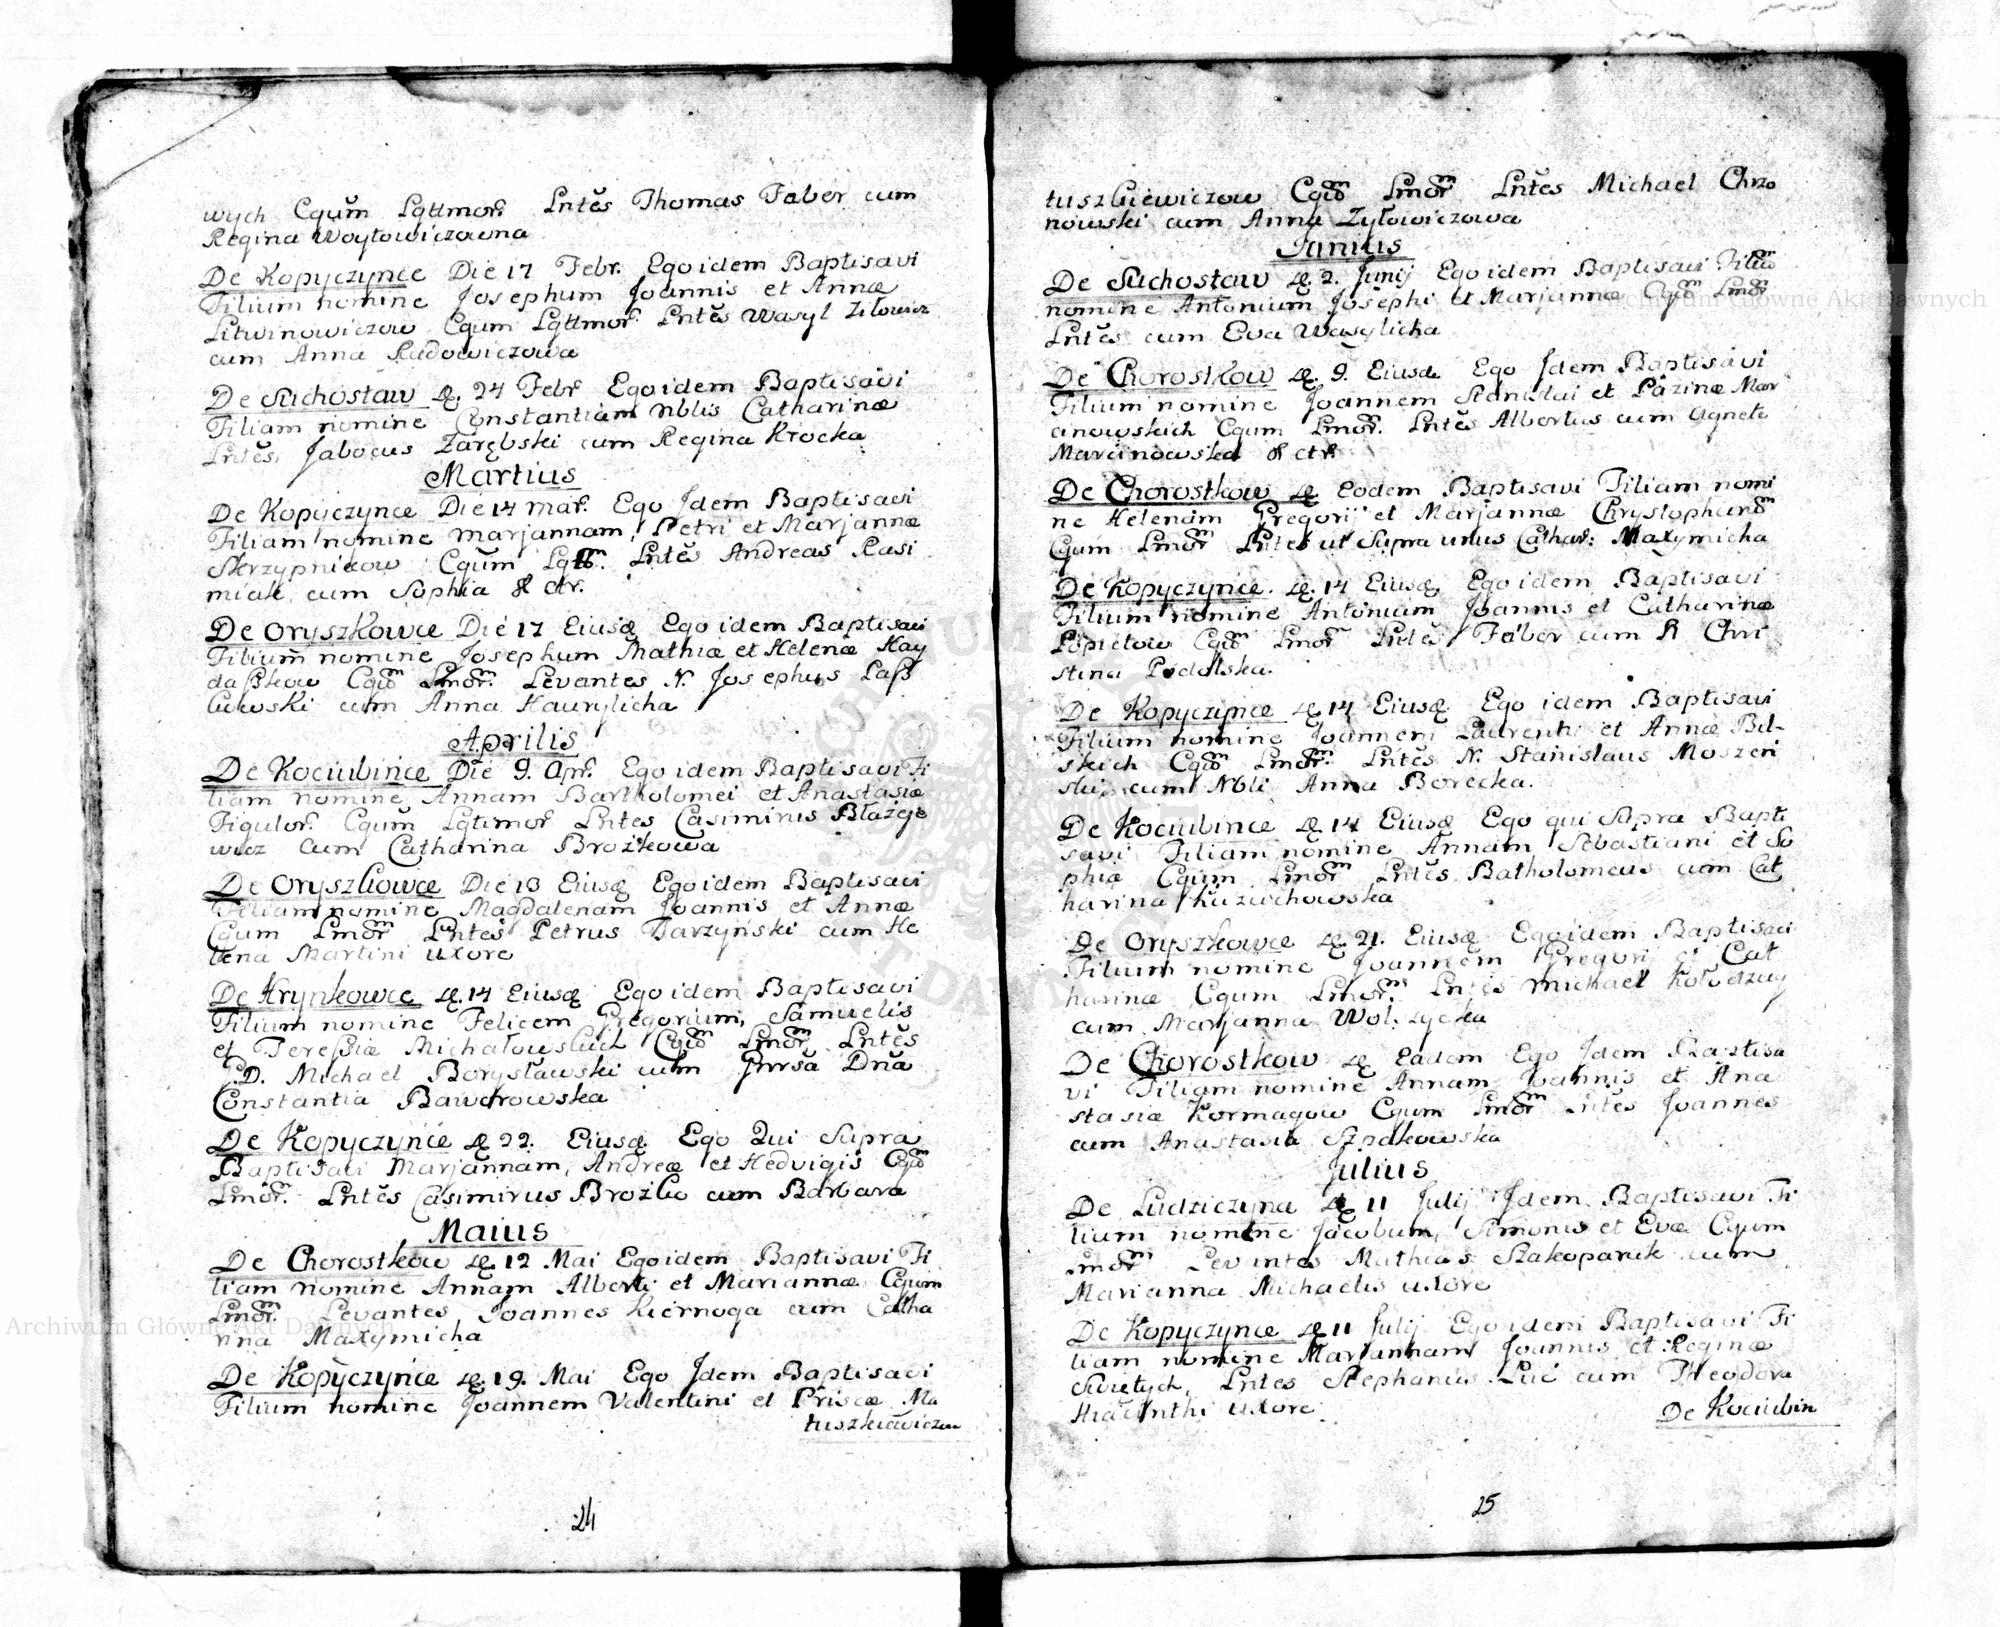 wych Cgum Lgttmor. Lntes Thomas Faber cum
Regina Woytowiczowna
De Kopyczynce Die 17 Febr. Ego idem Baptisavi
Filium nomine Josephum Joannis et Annæ
Litwinowiczow Cgum Lgttmor. Lntes Wasyl Ziłowicz
cum Anna Radowiczowa
De Suchostaw 24 Febr Ego idem Baptisavi
Filiam nomine Constantiam Nblis Catharinæ
Lntes, Jabocus Zarębski cum Regina Krocka
Martius
De Kopyczynce Die 14 mar. Ego Jdem Baptisavi
Filiam nomine Marjannam, Petri et Marjannæ
Skrzypnikow Cgum Lntes Andreas Rasi
miak cum Sophia
De Oryszkowce Die 17 Eiusdę Ego idem Baptisavi
Filium nomine Josephum Mathiæ et Helenæ Hay
daßkow Cgum Lmor. Levantes N. Josephus Laß
kiewski cum Anna Haurylicha
Aprilis
De Kociubince Die 9. Apr. Ego idem Baptisavi Fi
liam nomine Annam Bartholomei et Anastasiæ
Figulor. Cgum Lgtimor Lntes Casimirus Błażeje
wicz cum Catharina Brożkowa
De Oryszkowce Die 13 Eiusdę Ego idem Baptisavi
Filiam nomine Magdalenam Joannis et Annæ
Cgum Lmor Lntes Petrus Tarzyński cum He
lena Martini uxore
De Hrynkowce 14 Eiusdę Ego idem Baptisavi
Filium nomine Felicem Gregorium, Samuelis
et Tereßiæ Michałowskich Cgum Lmor Lntes
G.D. Michael Borysławski cum Gnrsa Dna
Constantia Baworowska
De Kopyczynce 22. Eiusdę Ego Qui Supra
Baptisavi Marjannam, Andreæ et Hedvigis Cgum
Lmor. Lntes Casimirus Brożko cum Barbara
Maius
De Chorostkow 12 Mai Ego idem Baptisavi Fi
liam nomine Annam Alberti et Mariannæ Cgum
Lmor. Levantes Joannes Kiernoga cum Catha
rina Maxymicha
De Kopyczynce 19. Mai Ego Jdem Baptisavi
Filium nomine Joannem Valentini et Priscæ Ma
tuszkiewiczow
24
tuszkiewiczow Cgum Lmor Lntes Michael Chrzo
nowski cum Anna Zyłowiczowa
Junius
De Suchostaw 2. Junij Ego idem Baptisavi Filium
nomine Antonium Josephi et Marjannæ Cgum Lmor
Lntes cum Eva Wasylicha
De Chorostkow 9. Eiusdę Ego Jdem Baptisavi
Filium nomine Joannem Stanislai et Pazinæ Mar
cinowskich Cgum Lmor. Lntes Albertus cum Agnete
Marcinowska
De Chorostkow Eodem Baptisavi Filiam nomi
ne Helenam Gregorij et Marjannæ Chrystophand
Cgum Lmor Lntes ut Supra unus Cathar: Maxymicha
De Kopyczynce. 14 Eiusdę Ego idem Baptisavi
Filium nomine Antonium Joannis et Catharinæ
Popielow Cgum Lmor Lntes Faber cum N Chri
stina Podolska.
De Kopyczynce 14 Eiusdę Ego idem Baptisavi
Filium nomine Joannem Laurenti et Annæ Bil-
skich Cgum Lmor. Lntes N. Stanislaus Moszeń
ski, cum Nbli Anna Borecka.
De Kociubince 14 Eiusdę Ego qui Supra Bapti
savi Filiam nomine Annam Sebastiani et So
phiæ Cgum Lmor Lntes Batholomeus cum Cat
harina Kuzuchowska
De Oryszkowce 21. Eiusdę Ego idem Baptisavi
Filium nomine Joannem Gregorij et Cat
harinæ Cgum Lmor. Lntes Michael Kołodziey
cum Marjanna
De Chorostkow Eadem Ego Jdem Baptisa
vi Filiam nomine Annam Joannis et Ana
stasiæ Kormagow Cgum Lmor Lntes Joannes
cum Anastasia Szpakowska
Julius
De Ludziczyna 11 Julij Jdem Baptisavi Fi
lium nomine Jacobum, Simonis et Evæ Cgum
Lmor Levantes Mathias Szakoparuk cum
Marianna Michaelis uxore
De Kopyczynce 11 Julij Ego idem Baptisavi Fi
liam nomine Marjannam Joannis et Reginæ
Swiętych, Lntes Stephanus Luc cum Theodora
Hiacinthi uxore
De Kociubin
25
Archiwum Główne Akt Dawnych
Archiwum Główne Akt Dawnych